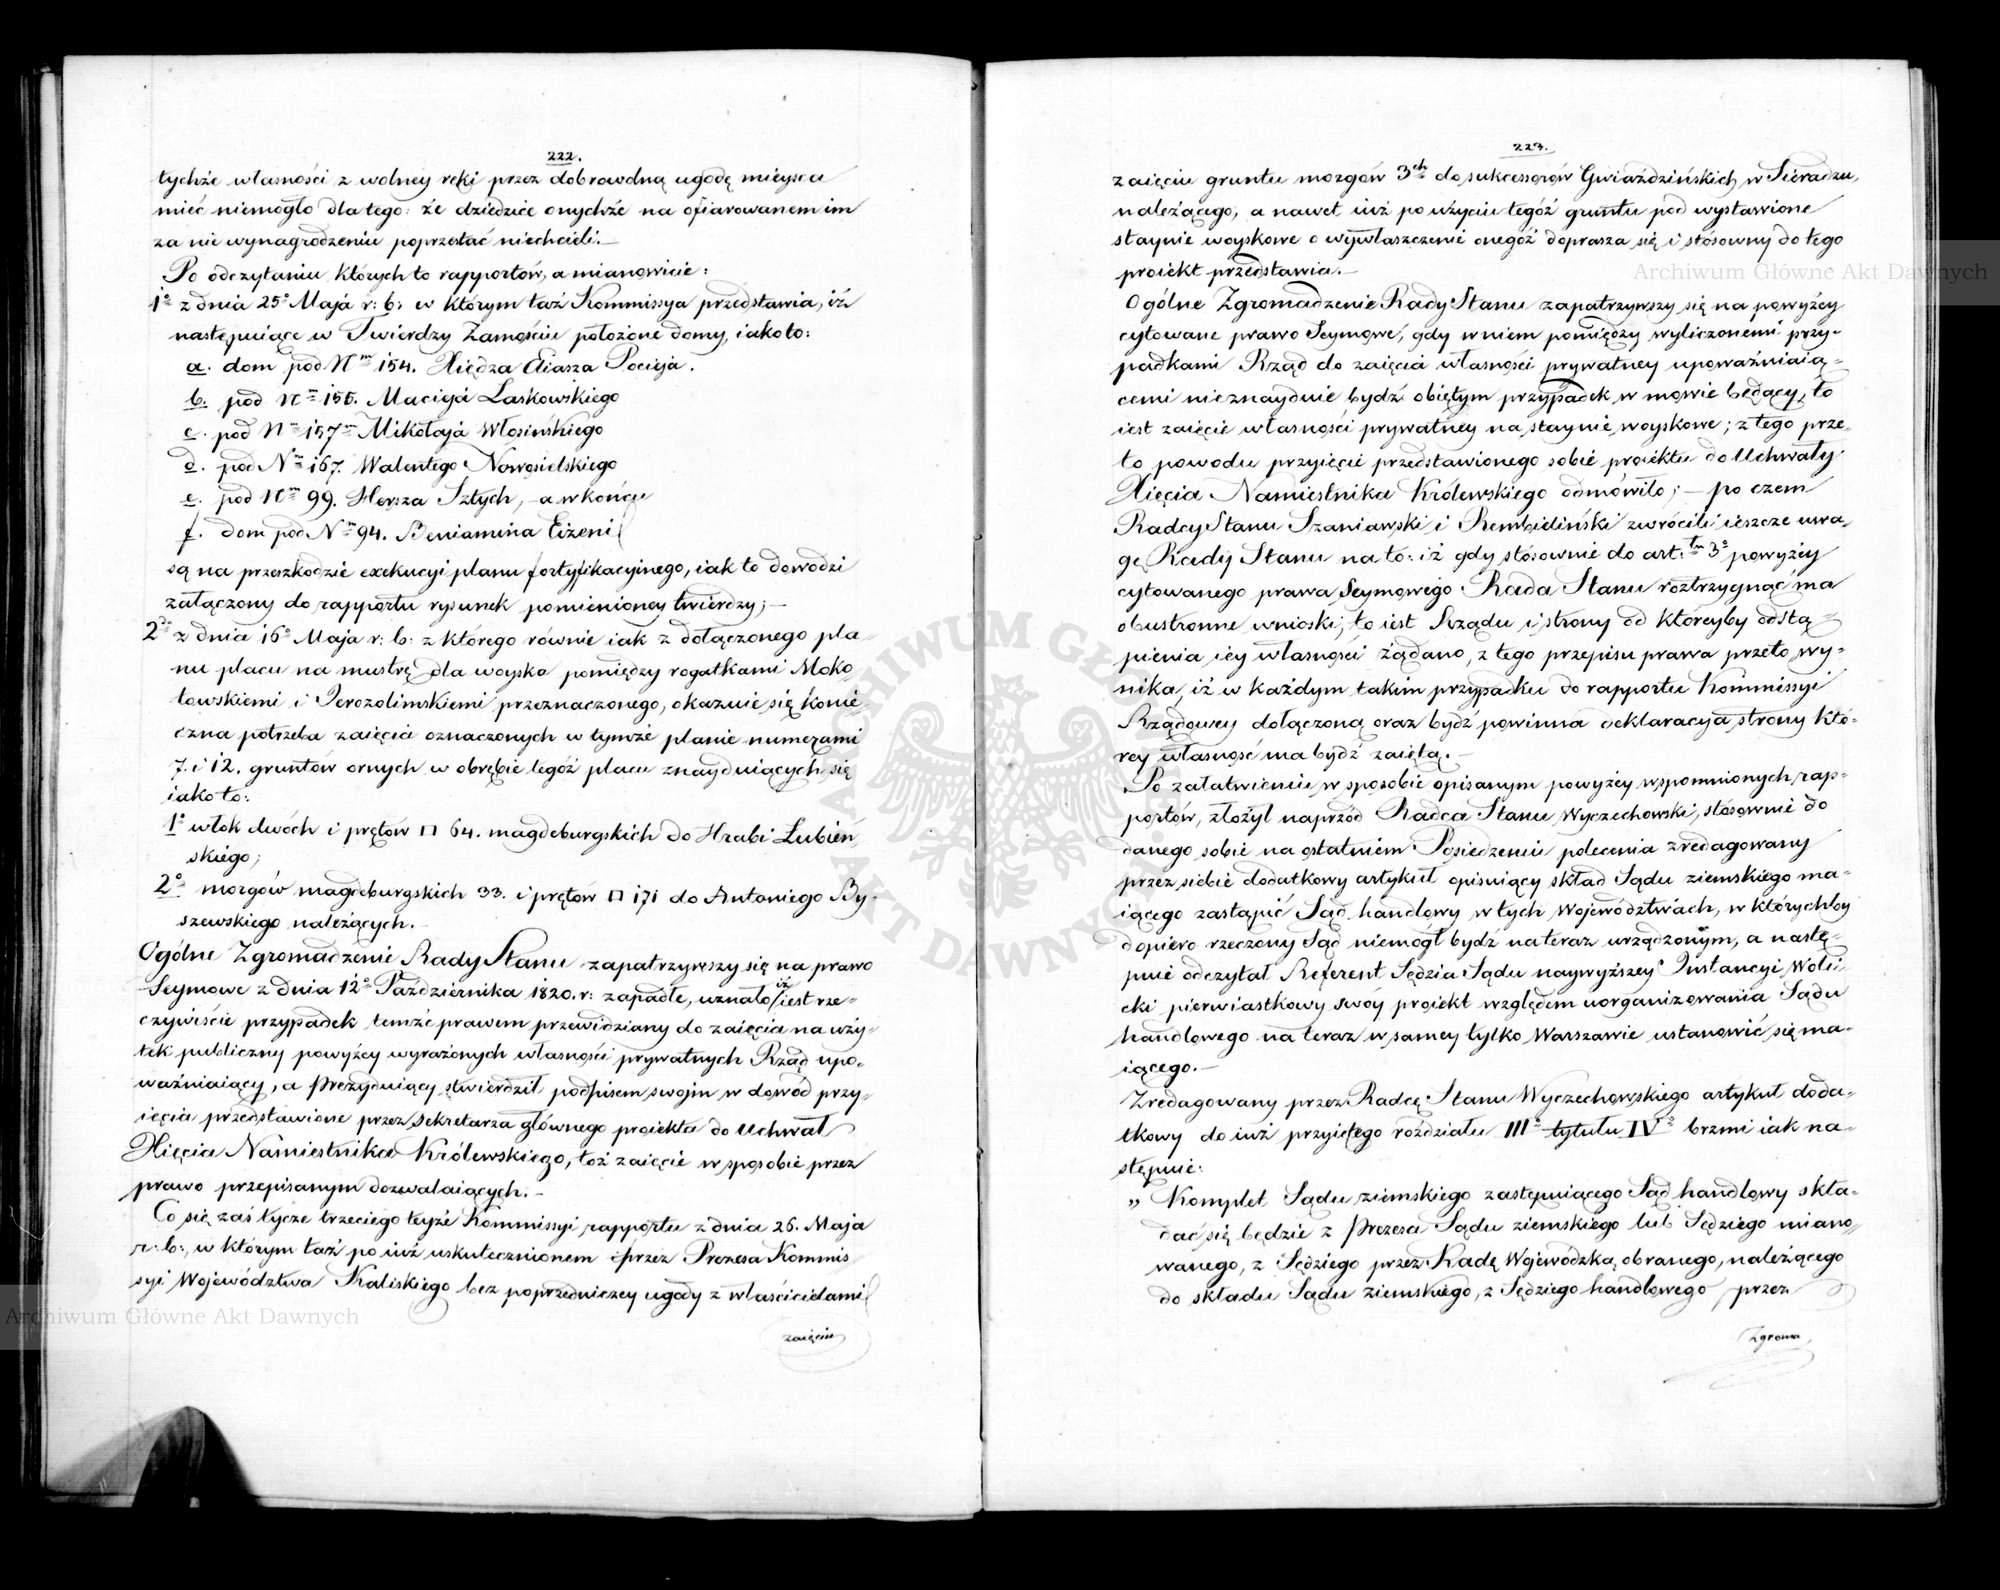 222.
tychże własności z wolney ręki przez dobrowolną ugodę mieysca
mieć niemogło dla tego: że dziedzice onychże na ofiarowanem im
za nie wynagrodzeniu poprzestać niechcieli.—
Po odczytaniu których to rapportów, a mianowicie:
1º z dnia 25º Maja r: b: w którym taż Kommissya przedstawia, iż
następuiące w Twierdzy Zamościu położone domy, iako to:
a. dom pod Nm 154. Xiędza Eliasza Pocieja.
b. pod Nm 155. Macieja Laskowskiego
c. pod Nm 157m Mikołaja Włosińskiego
d. pod Nm 167. Walentego Nowosielskiego
e. pod Nm 99. Hersza Sztych, — a w końcu
f. dom pod Nm 94. Beniamina Eizen
są na przeszkodzie exekucyi planu fortyfikacyinego, iak to dowodzi
załączony do rapportu rysunek pomienioney twierdzy; —
2do z dnia 16º Maja r: b: z którego równie iak z dołączonego pla-
nu placu na mustrę dla woyska pomiędzy rogatkami Moko-
towskiemi i Jerozolimskiemi przeznaczonego, okazuie się konie-
czna potrzeba zaięcia oznaczonych w tymże planie numerami
7. i 12. gruntów ornych w obrębie tegóż placu znayduiących się
iako to:
1º włok dwóch i prętów □ 64. magdeburgskich do Hrabi Łubień
skiego;
2º morgów magdeburgskich 33. i prętów □ 171 do Antoniego By-
szewskiego należących.—
Ogólne Zgromadzenie Rady Stanu zapatrzywszy się na prawo
Seymowe z dnia 12º Października 1820. r: zapadłe, uznało iż iest rze-
czywiście przypadek temże prawem przewidziany do zaięcia na uży-
tek publiczny powyżey wyrażonych własności prywatnych Rząd upo-
ważniaiący, a Prezyduiący stwierdził podpisem swojm w dowód przy-
ięcia przedstawione przez Sekretarza głównego proiekta do Uchwał
Xięcia Namiestnika Królewskiego, toż zaięcie w sposobie przez
prawo przepisanym dozwalaiących.—
Co się zaś tycze trzeciego teyże Kommissyi rapportu z dnia 26. Maja
r: b:, w którym taż po iuż uskutecznionem przez Prezesa Kommis
syi Województwa Kaliskiego bez poprzedniczey ugody z właścicielami
zaięciu
223.
zaięciu gruntu morgów 3ch do sukcessorów Gwiaździńskich w Sieradzu,
należącego, a nawet iuż po użyciu tegóż gruntu pod wystawione
staynie woyskowe o wywłaszczenie onegóż doprasza się i stósowny do tego
proiekt przedstawia.—
Ogólne Zgromadzenie Rady Stanu zapatrzywszy się na powyżey
cytowane prawo Seymowe, gdy w niem pomiędzy wyliczonemi przy-
padkami Rząd do zaięcia własności prywatney upoważniaią-
cemi nieznayduie bydź obiętym przypadek w mowie będący, to
iest zaięcie własności prywatney na staynie woyskowe; z tego prze-
to powodu przyięcie przedstawionego sobie proiektu do Uchwały
Xięcia Namiestnika Królewskiego odmówiło; — po czem
Radcy Stanu Szaniawski i Rembieliński zwrócili ieszcze uwa-
gę Rady Stanu na to: iż gdy stósownie do art:tu 3º powyżey
cytowanego prawa Seymowego Rada Stanu roztrzygnąć ma
obustronne wnioski, to iest Rządu i strony od któreyby odstą-
pienia iey własności żądano, z tego przepisu prawa przeto wy-
nika, iż w każdym takim przypadku do rapportu Kommissyi
Rządowey dołączoną oraz bydź powinna deklaracya strony któ-
rey własność ma bydź zaiętą.—
Po załatwieniu w sposobie opisanym powyżey wspomnionych rap-
portów, złożył naprzód Radca Stanu Wyczechowski, stósownie do
danego sobie na ostatniem Posiedzeniu polecenia zredagowany
przez siebie dodatkowy artykuł opisuiący skład Sądu ziemskiego ma-
iącego zastąpić Sąd handlowy w tych Województwach, w którychby
dopiero rzeczony Sąd niemógł bydź na teraz urządzonym, a nastę-
pnie odczytał Referent Sędzia Sądu naywyższey Instancyi Woli-
cki pierwiastkowy swóy proiekt względem uorganizowania Sądu
handlowego na teraz w samey tylko Warszawie ustanowić się ma-
iącego.—
Zredagowany przez Radcę Stanu Wyczechowskiego artykuł doda-
tkowy do iuż przyiętego rozdziału IIIº tytułu IVº brzmi iak na-
stępuie:
„ Komplet Sądu ziemskiego zastępuiącego Sąd handlowy skła-
dać się będzie z Prezesa Sądu ziemskiego lub Sędziego miano-
wanego, z Sędziego przez Radę Wojewódzką obranego, należącego
do składu Sądu ziemskiego, z Sędziego handlowego przez
Zgroma
Archiwum Główne Akt Dawnych
Archiwum Główne Akt Dawnych
ARCHIWUM GŁÓWNE AKT DAWNYCH